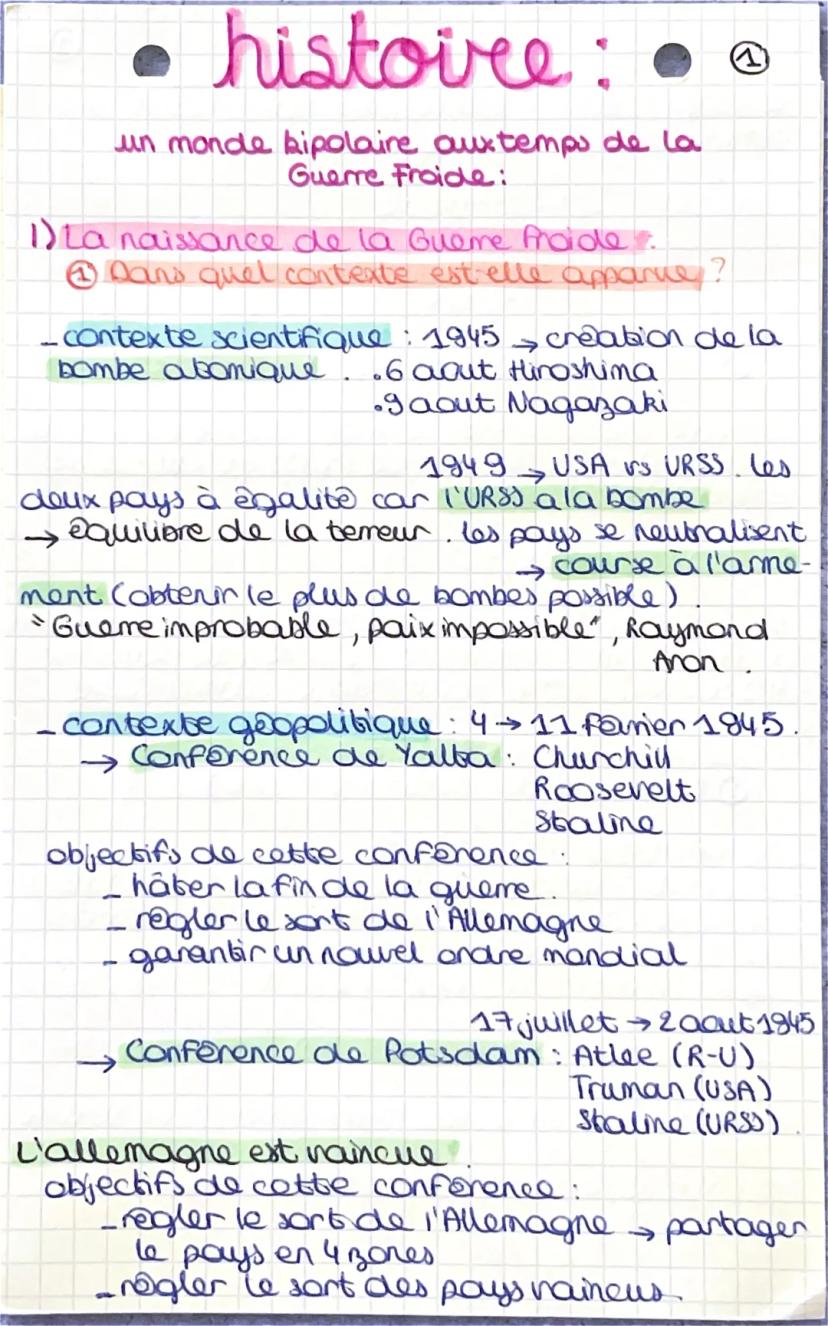 histoire :
①
un monde bipolaire aux temps de la
Guerre Froide :
1) La naissance de la Guerre froide.
① Dans quel contexte est-elle apparue ?
- contexte scientifique : 1945 → création de la
bombe atomique . .6 aout Hiroshima
.9 aout Nagazaki
1949 → USA vs URSS . les
deux pays à égalité car l'URSS a la bombe
→ équilibre de la terreur . les pays se neutralisent
→ course à l'arme-
ment (obtenir le plus de bombes possible) .
"Guerre improbable, paix impossible", Raymond
Aron .
- contexte géopolitique : 4 → 11 février 1945.
→ Conférence de Yalta : Churchill
Roosevelt
Staline
objectifs de cette conférence :
- hâter la fin de la guerre.
- régler le sort de l'Allemagne
- garantir un nouvel ordre mondial
17 juillet → 2 aout 1945
→ Conférence de Potsdam : Atlee (R-U)
Truman (USA)
Staline (URSS) .
L'allemagne est vaincue .
objectifs de cette conférence :
- régler le sort de l'Allemagne → partager
le pays en 4 zones
- régler le sort des pays vaincus.